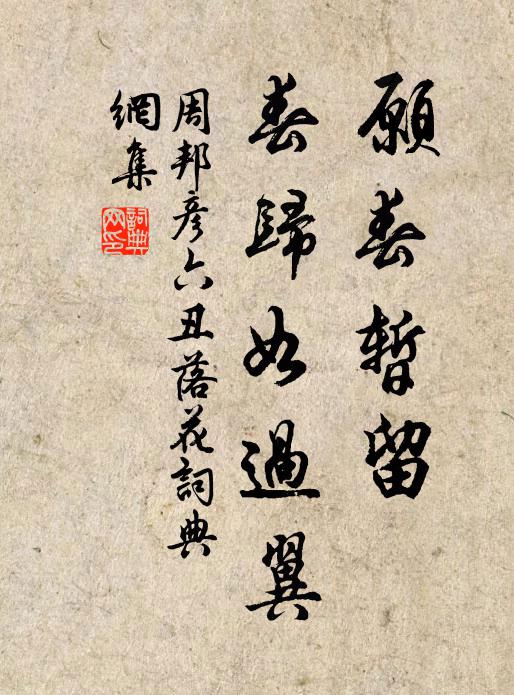 願春暫留
春歸如過翼
周邦彥六丑落花詞典
網集
詞典
网印